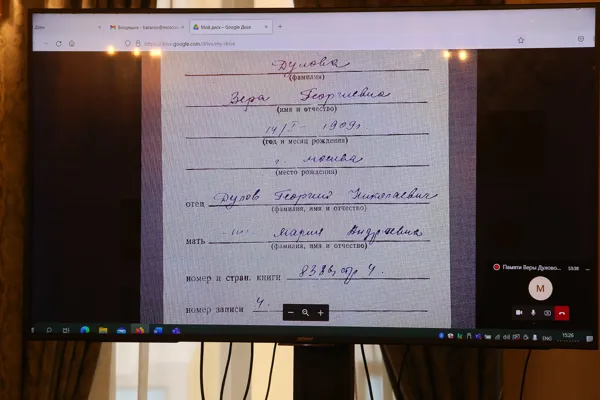 Мой диск – Google Диск
Дулова
(фамилия)
Вера Георгиевна
(имя и отчество)
14/I – 1909г
(год и месяц рождения)
г. Москва
(место рождения)
отец Дулов Георгий Николаевич
(фамилия, имя и отчество)
мать —"— Мария Андреевна
(фамилия, имя и отчество)
номер и стран. книги стр 4.
номер записи 4.
Памяти Веры Дулово...
M
ENG
15:26